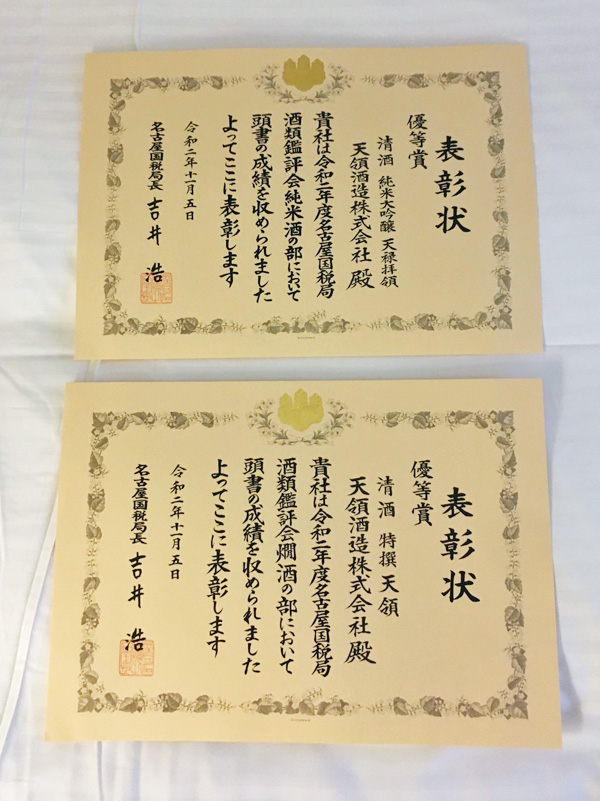 表彰状
優等賞
清酒 純米大吟醸 天禄拝領
天領酒造株式会社 殿
貴社は令和二年度名古屋国税局
酒類鑑評会純米酒の部において
頭書の成績を収められました
よってここに表彰します
令和二年十一月五日
名古屋国税局長 吉井 浩
表彰状
優等賞
清酒 特撰 天領
天領酒造株式会社 殿
貴社は令和二年度名古屋国税局
酒類鑑評会燗酒の部において
頭書の成績を収められました
よってここに表彰します
令和二年十一月五日
名古屋国税局長 吉井 浩